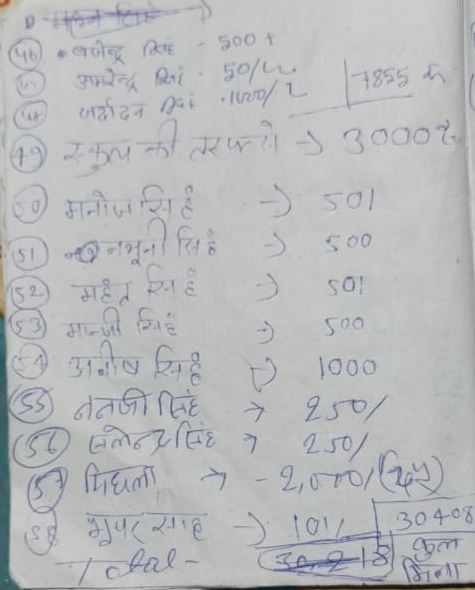 46 बजेन्द्र सिंह - 500 +
अमरेन्द्र सिंह - 50/
7855 रु
48 जर्नादन सिंह - 1000/
49 स्कूल की तरफ से → 3000 रु
50 मनोज सिहं → 501
51 नभूनी सिंह → 500
52 महंत सिहं → 501
53 मान्जी सिहं → 500
54 अनीष सिहं → 1000
55 ननजी सिंह → 250/
56 सलेन्द्र सिंह → 250/
57 पिछला → - 2,000/
58 भूपर साह → 101/
30408
Total -
कुल
मिला